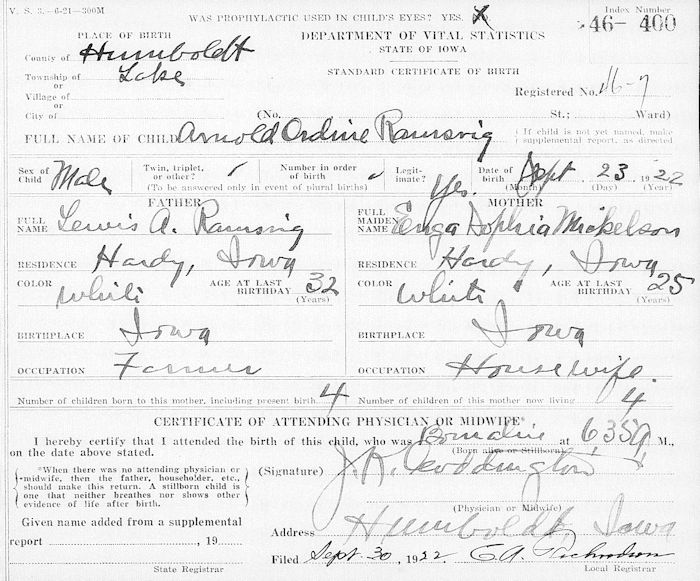 V. S. 3.—6-21—300M
WAS PROPHYLACTIC USED IN CHILD'S EYES? YES. NO
Index Number
46- 400
PLACE OF BIRTH
DEPARTMENT OF VITAL STATISTICS
County of Humboldt
STATE OF IOWA
Township of Lake
or
STANDARD CERTIFICATE OF BIRTH
Village of
or
Registered No. 46-7
City of (No. St.; Ward)
FULL NAME OF CHILD Arnold Ordine Ramsvig
(If child is not yet named, make supplemental report, as directed
Sex of Child Male
Twin, triplet, or other?
Number in order of birth
(To be answered only in event of plural births)
Legitimate? Yes.
Date of birth Sept 23 1922
(Month) (Day) (Year)
FATHER
FULL NAME Lewis A. Ramsvig
RESIDENCE Hardy, Iowa
COLOR White AGE AT LAST BIRTHDAY 32
(Years)
BIRTHPLACE Iowa
OCCUPATION Farmer
MOTHER
FULL MAIDEN NAME Enga Sophia Mickelson
RESIDENCE Hardy, Iowa
COLOR White AGE AT LAST BIRTHDAY 25
(Years)
BIRTHPLACE Iowa
OCCUPATION Housewife.
Number of children born to this mother, including present birth. 4
Number of children of this mother now living 4
CERTIFICATE OF ATTENDING PHYSICIAN OR MIDWIFE*
I hereby certify that I attended the birth of this child, who was Born alive at 6,35 M.,
on the date above stated.
(Born alive or Stillborn)
*When there was no attending physician or
midwife, then the father, householder, etc.,
should make this return. A stillborn child is
one that neither breathes nor shows other
evidence of life after birth.
(Signature) J. K. Coddington
(Physician or Midwife)
Given name added from a supplemental
report , 19
State Registrar
Address Humboldt, Iowa
Filed Sept. 30, 1922 C. A. Richardson
Local Registrar